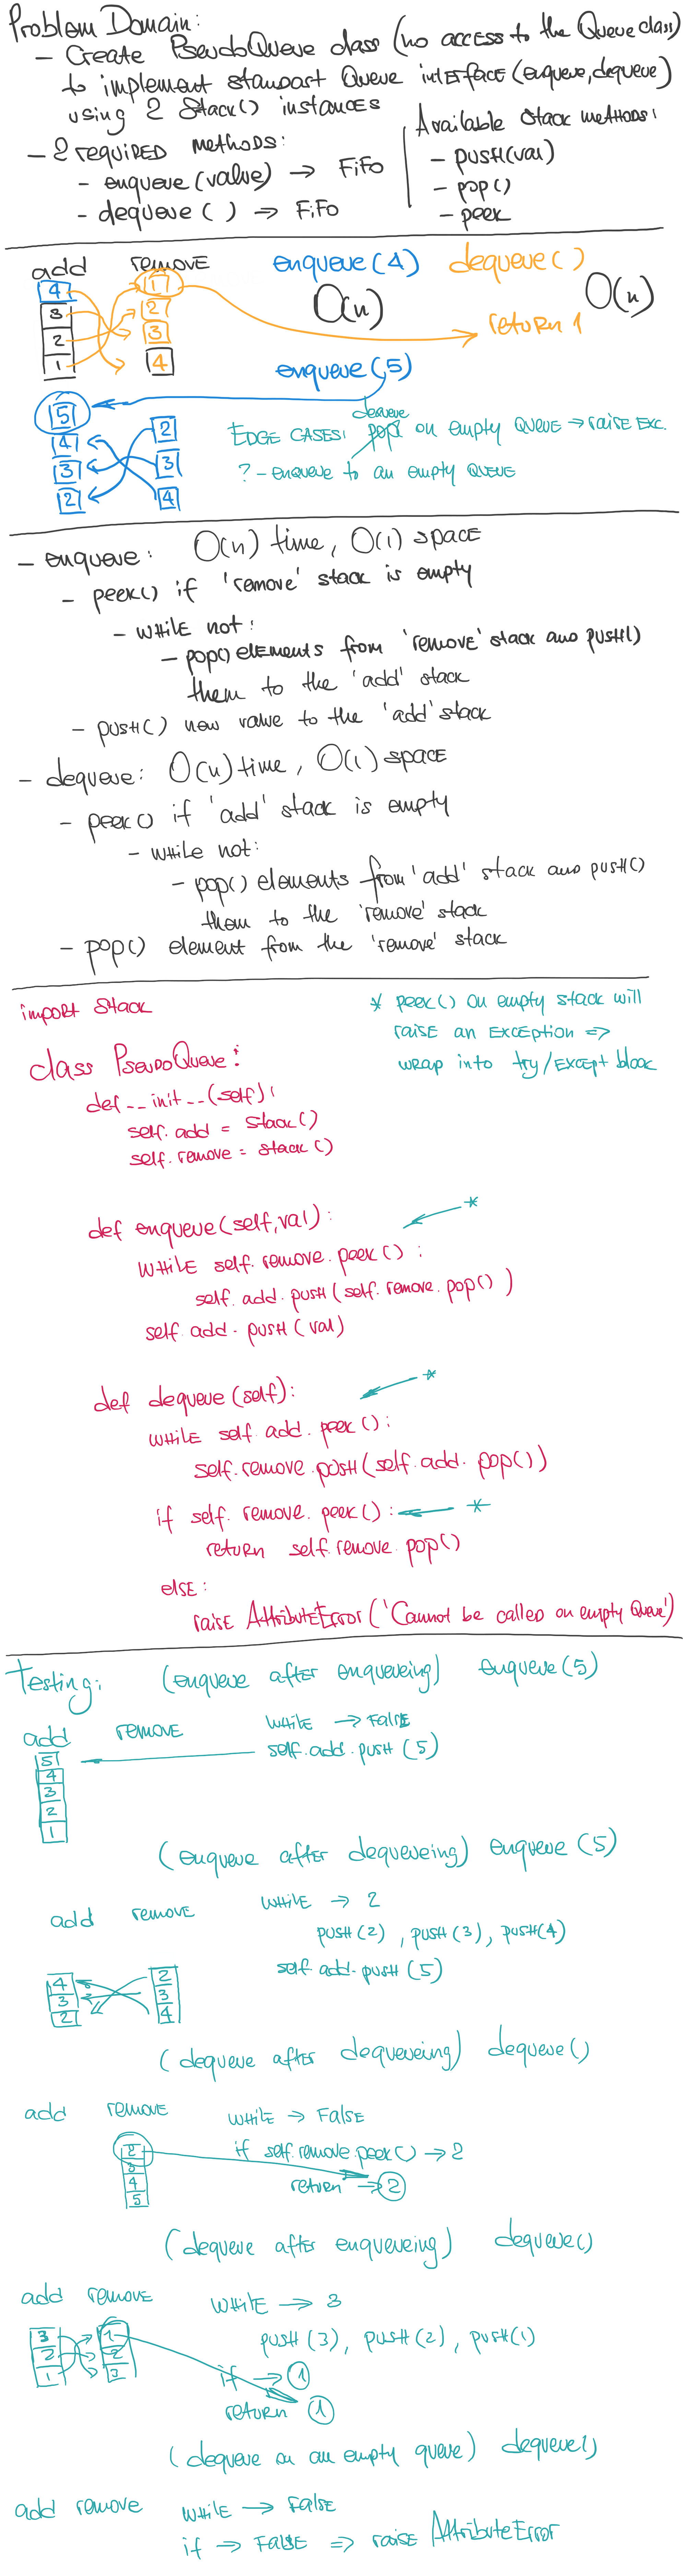 Problem Domain:
- Create PseudoQueue class (no access to the Queue class)
to implement standart Queue interface (enqueue, dequeue)
using 2 Stack() instances
- 2 required methods:
- enqueue(value) → FiFo
- dequeue() → FiFo
Available Stack methods:
- push(val)
- pop()
- peek
add remove
enqueue(4) dequeue()
O(n) O(n)
4
3
2
1
1
2
3
4
return 1
enqueue(5)
5
4
3
2
2
3
4
dequeue
Edge cases: pop on empty queue → raise exc.
? - enqueue to an empty queue
- enqueue: O(n) time, O(1) space
- peek() if 'remove' stack is empty
- while not:
- pop() elements from 'remove' stack and push()
them to the 'add' stack
- push() new value to the 'add' stack
- dequeue: O(n) time, O(1) space
- peek() if 'add' stack is empty
- while not:
- pop() elements from 'add' stack and push()
them to the 'remove' stack
- pop() element from the 'remove' stack
import Stack
* peek() on empty stack will
raise an exception =>
wrap into try/except block
class PseudoQueue:
def __init__(self):
self.add = Stack()
self.remove = Stack()
def enqueue(self,val): *
while self.remove.peek():
self.add.push(self.remove.pop())
self.add.push(val)
def dequeue(self): *
while self.add.peek():
self.remove.push(self.add.pop())
if self.remove.peek(): *
return self.remove.pop()
else:
raise AttributeError('Cannot be called on empty Queue')
Testing: (enqueue after enqueueing) enqueue(5)
add remove while → False
self.add.push(5)
5
4
3
2
1
(enqueue after dequeueing) enqueue(5)
add remove while → 2
push(2), push(3), push(4)
self.add.push(5)
4
3
2
2
3
4
(dequeue after dequeueing) dequeue()
add remove while → False
if self.remove.peek() → 2
return → 2
2
3
4
5
(dequeue after enqueueing) dequeue()
add remove while → 3
push(3), push(2), push(1)
3
2
1
1
2
3
if → 1
return 1
(dequeue on an empty queue) dequeue()
add remove while → False
if → False => raise AttributeError